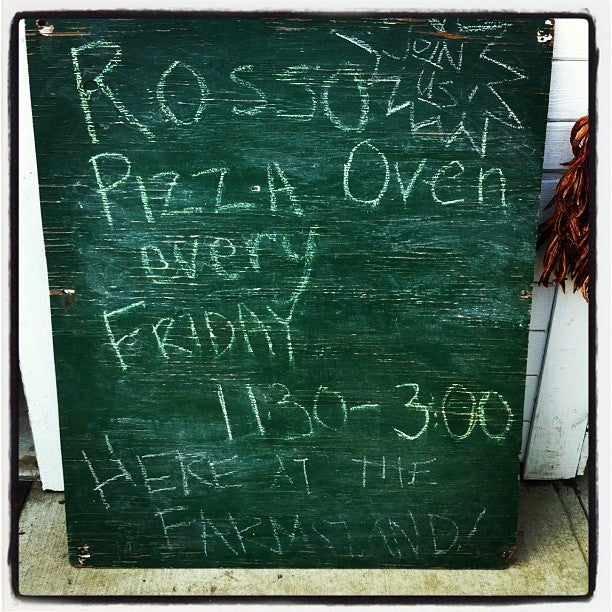 Rosso
JOIN
US!
PIZZA Oven
every
FRIDAY
11:30-3:00
HERE AT THE
FARMSTAND!